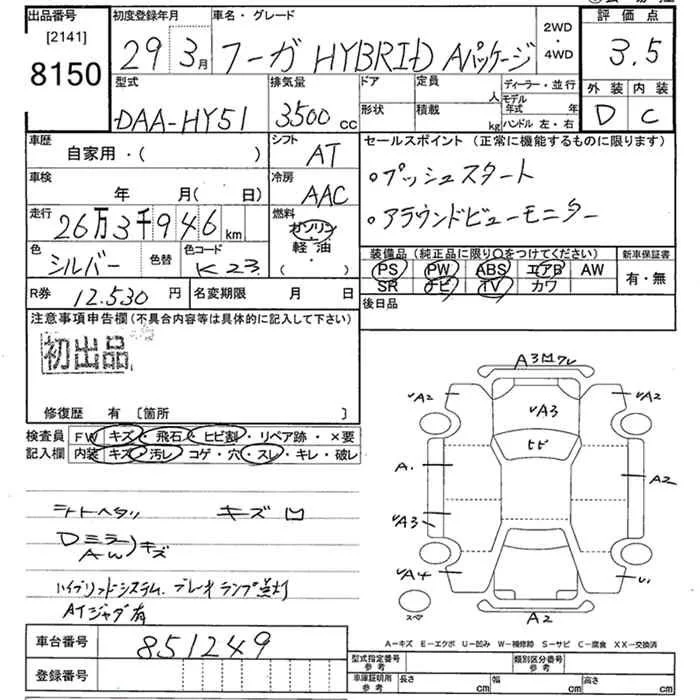 出品番号 初度登録年月 車名・グレード 2WD・4WD 評価点
[2141]
8150
29年 3月 フーガ HYBRID Aパッケージ 3.5
型式 排気量 ドア 定員 人 ディーラー・並行 外装 内装
DAA-HY51 3500cc 形状 積載 kg モデル年式 年 ハンドル 左・右 D C
車歴 自家用・( ) シフト AT
セールスポイント (正常に機能するものに限ります)
。プッシュスタート
。アラウンドビューモニター
車検 年 月( 日) 冷房 AAC
走行 26万3千946km 燃料 ガソリン・軽油・( )
色 シルバー 色替 色コード K23
装備品 (純正品に限り○をつけてください) 新車保証書
PS PW ABS エアB AW 有・無
SR ナビ TV カワ
R券 12.530円 名変期限 月 日 後日品
注意事項申告欄 (不具合内容等は具体的に記入して下さい)
初出品
修復歴 有 〔箇所 〕
検査員記入欄 FW キズ・飛石・ヒビ割・リペア跡・×要
内装 キズ・汚レ・コゲ・穴・スレ・キレ・破レ
シートヘタリ キズ凹
Dミラー
AW)キズ
ハイブリッドシステム、ブレーキランプ点灯
ATジャダ有
A3凹ワレ
√A2 √A3 √A2
ヒビ
A.
A2
√A3
√A4
スペア
A2
A-キズ E-エクボ U-凹み W-補修跡 S-サビ C-腐食 XX-交換済
車台番号 851249
登録番号
型式指定番号 参考 類別区分番号 参考
車庫証明用 参考 長さ cm 幅 cm 高さ cm